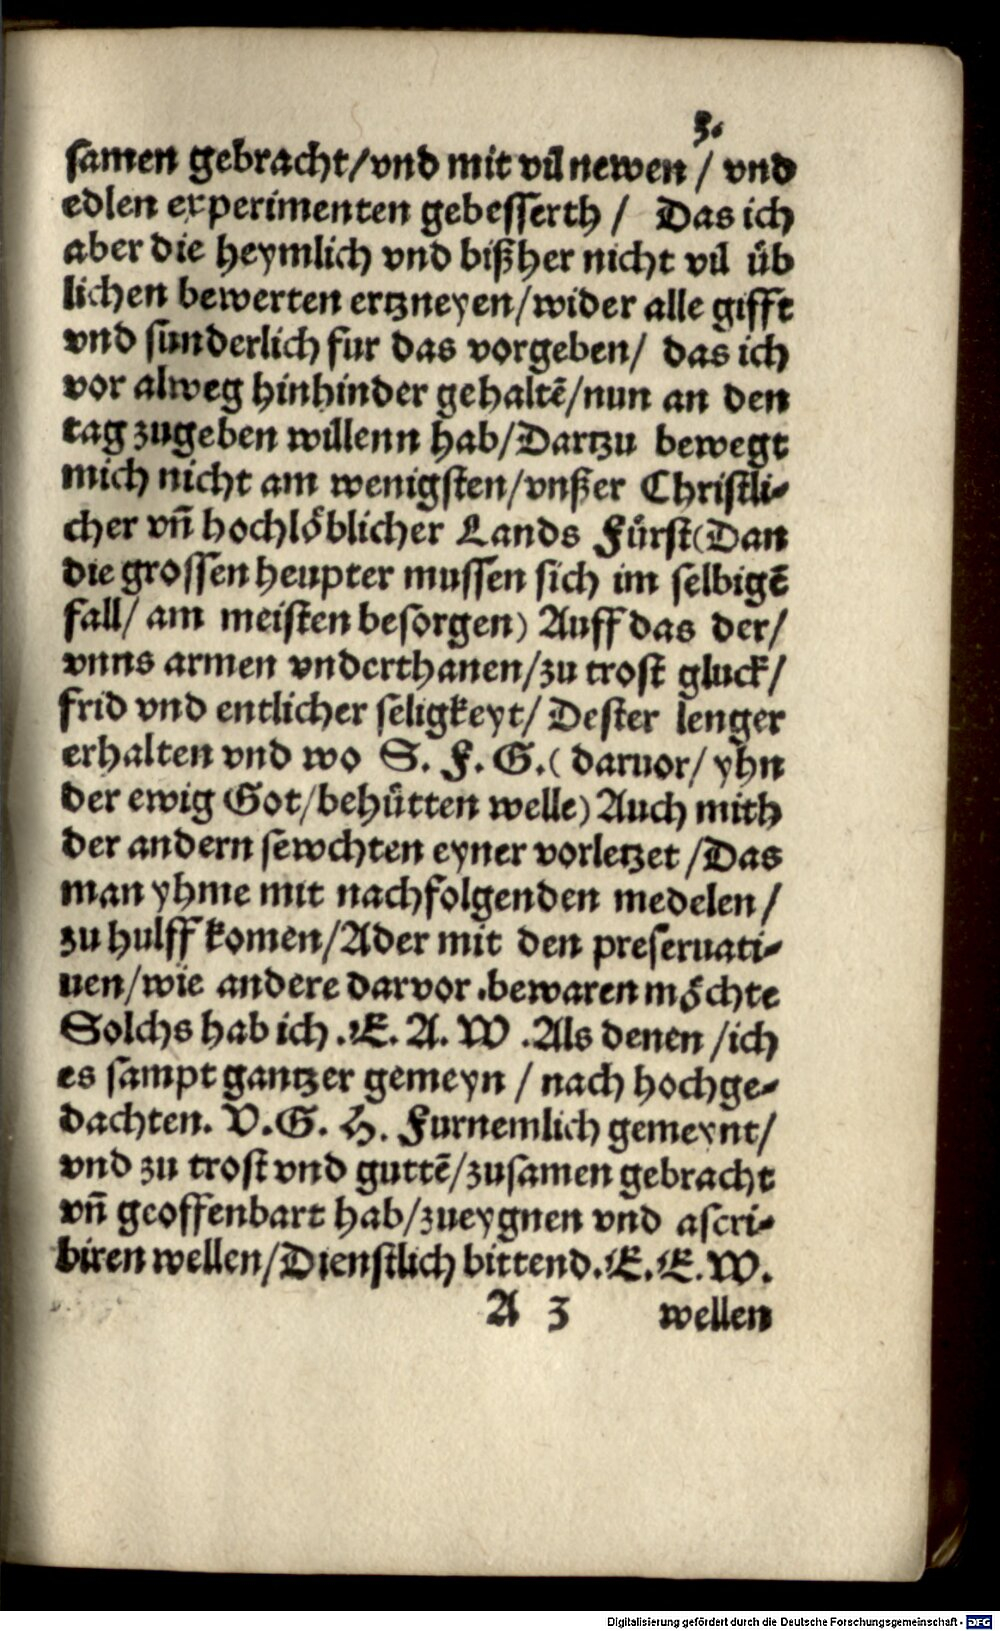 3.
samen gebracht/vnd mit vil newen/ vnd
edlen experimenten gebesserth/ Das ich
aber die heymlich vnd bißher nicht vil üb
lichen bewerten ertzneyen/wider alle gifft
vnd sunderlich fur das vorgeben/ das ich
vor alweg hinhinder gehaltẽ/nun an den
tag zugeben willenn hab/Dartzu bewegt
mich nicht am wenigsten/vnßer Christli⸗
cher vñ hochlöblicher Lands Fürst(Dan
die grossen heupter mussen sich im selbigẽ
fall/ am meisten besorgen) Auff das der/
vnns armen vnderthanen/zu trost gluck/
frid vnd entlicher seligkeyt/ Dester lenger
erhalten vnd wo S. F. G.( daruor/ yhn
der ewig Got/behütten welle) Auch mith
der andern sewchten eyner vorletzet/Das
man yhme mit nachfolgenden medelen/
zu hulff komen/Ader mit den preseruati⸗
uen/wie andere darvor .bewaren möchte
Solchs hab ich .E. A. W .Als denen/ich
es sampt gantzer gemeyn/ nach hochge⸗
dachten. V.G. H. Furnemlich gemeynt/
vnd zu trost vnd guttẽ/zusamen gebracht
vñ geoffenbart hab/zueygnen vnd ascri⸗
biren wellen/Dienstlich bittend.E.E.W.
A 3 wellen
Digitalisierung gefördert durch die Deutsche Forschungsgemeinschaft - DFG